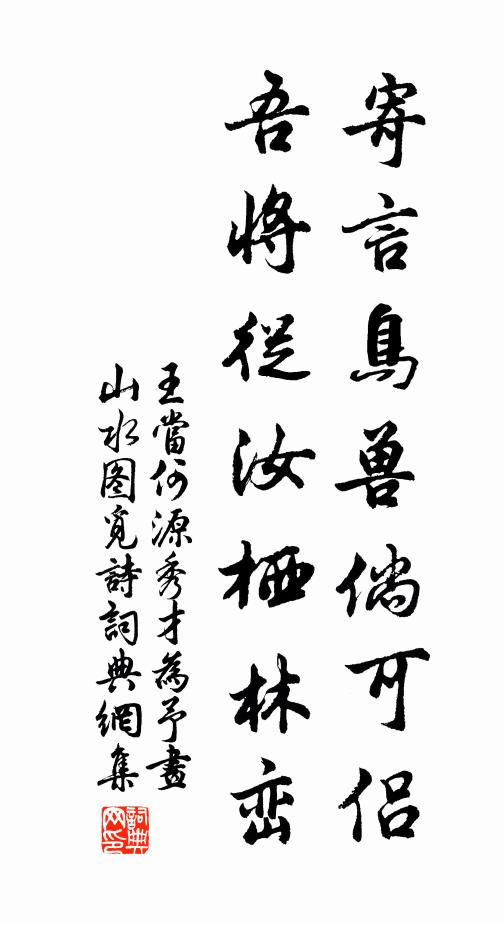 寄言鳥兽倘可侣
吾将從汝栖林峦
王當何源秀才為予畫
山水图覓詩詞典網集
詞典
网印